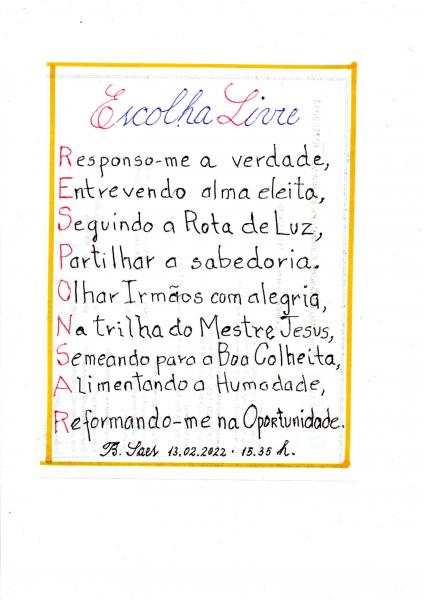 Escolha Livre
Responso-me a verdade,
Entrevendo alma eleita,
Seguindo a Rota de Luz,
Partilhar a sabedoria.
Olhar Irmãos com alegria,
Na trilha do Mestre Jesus,
Semeando para a Boa Colheita,
Alimentando a Humadade,
Reformando-me na Oportunidade.
B. Saes 13.02.2022 . 15.35 h.